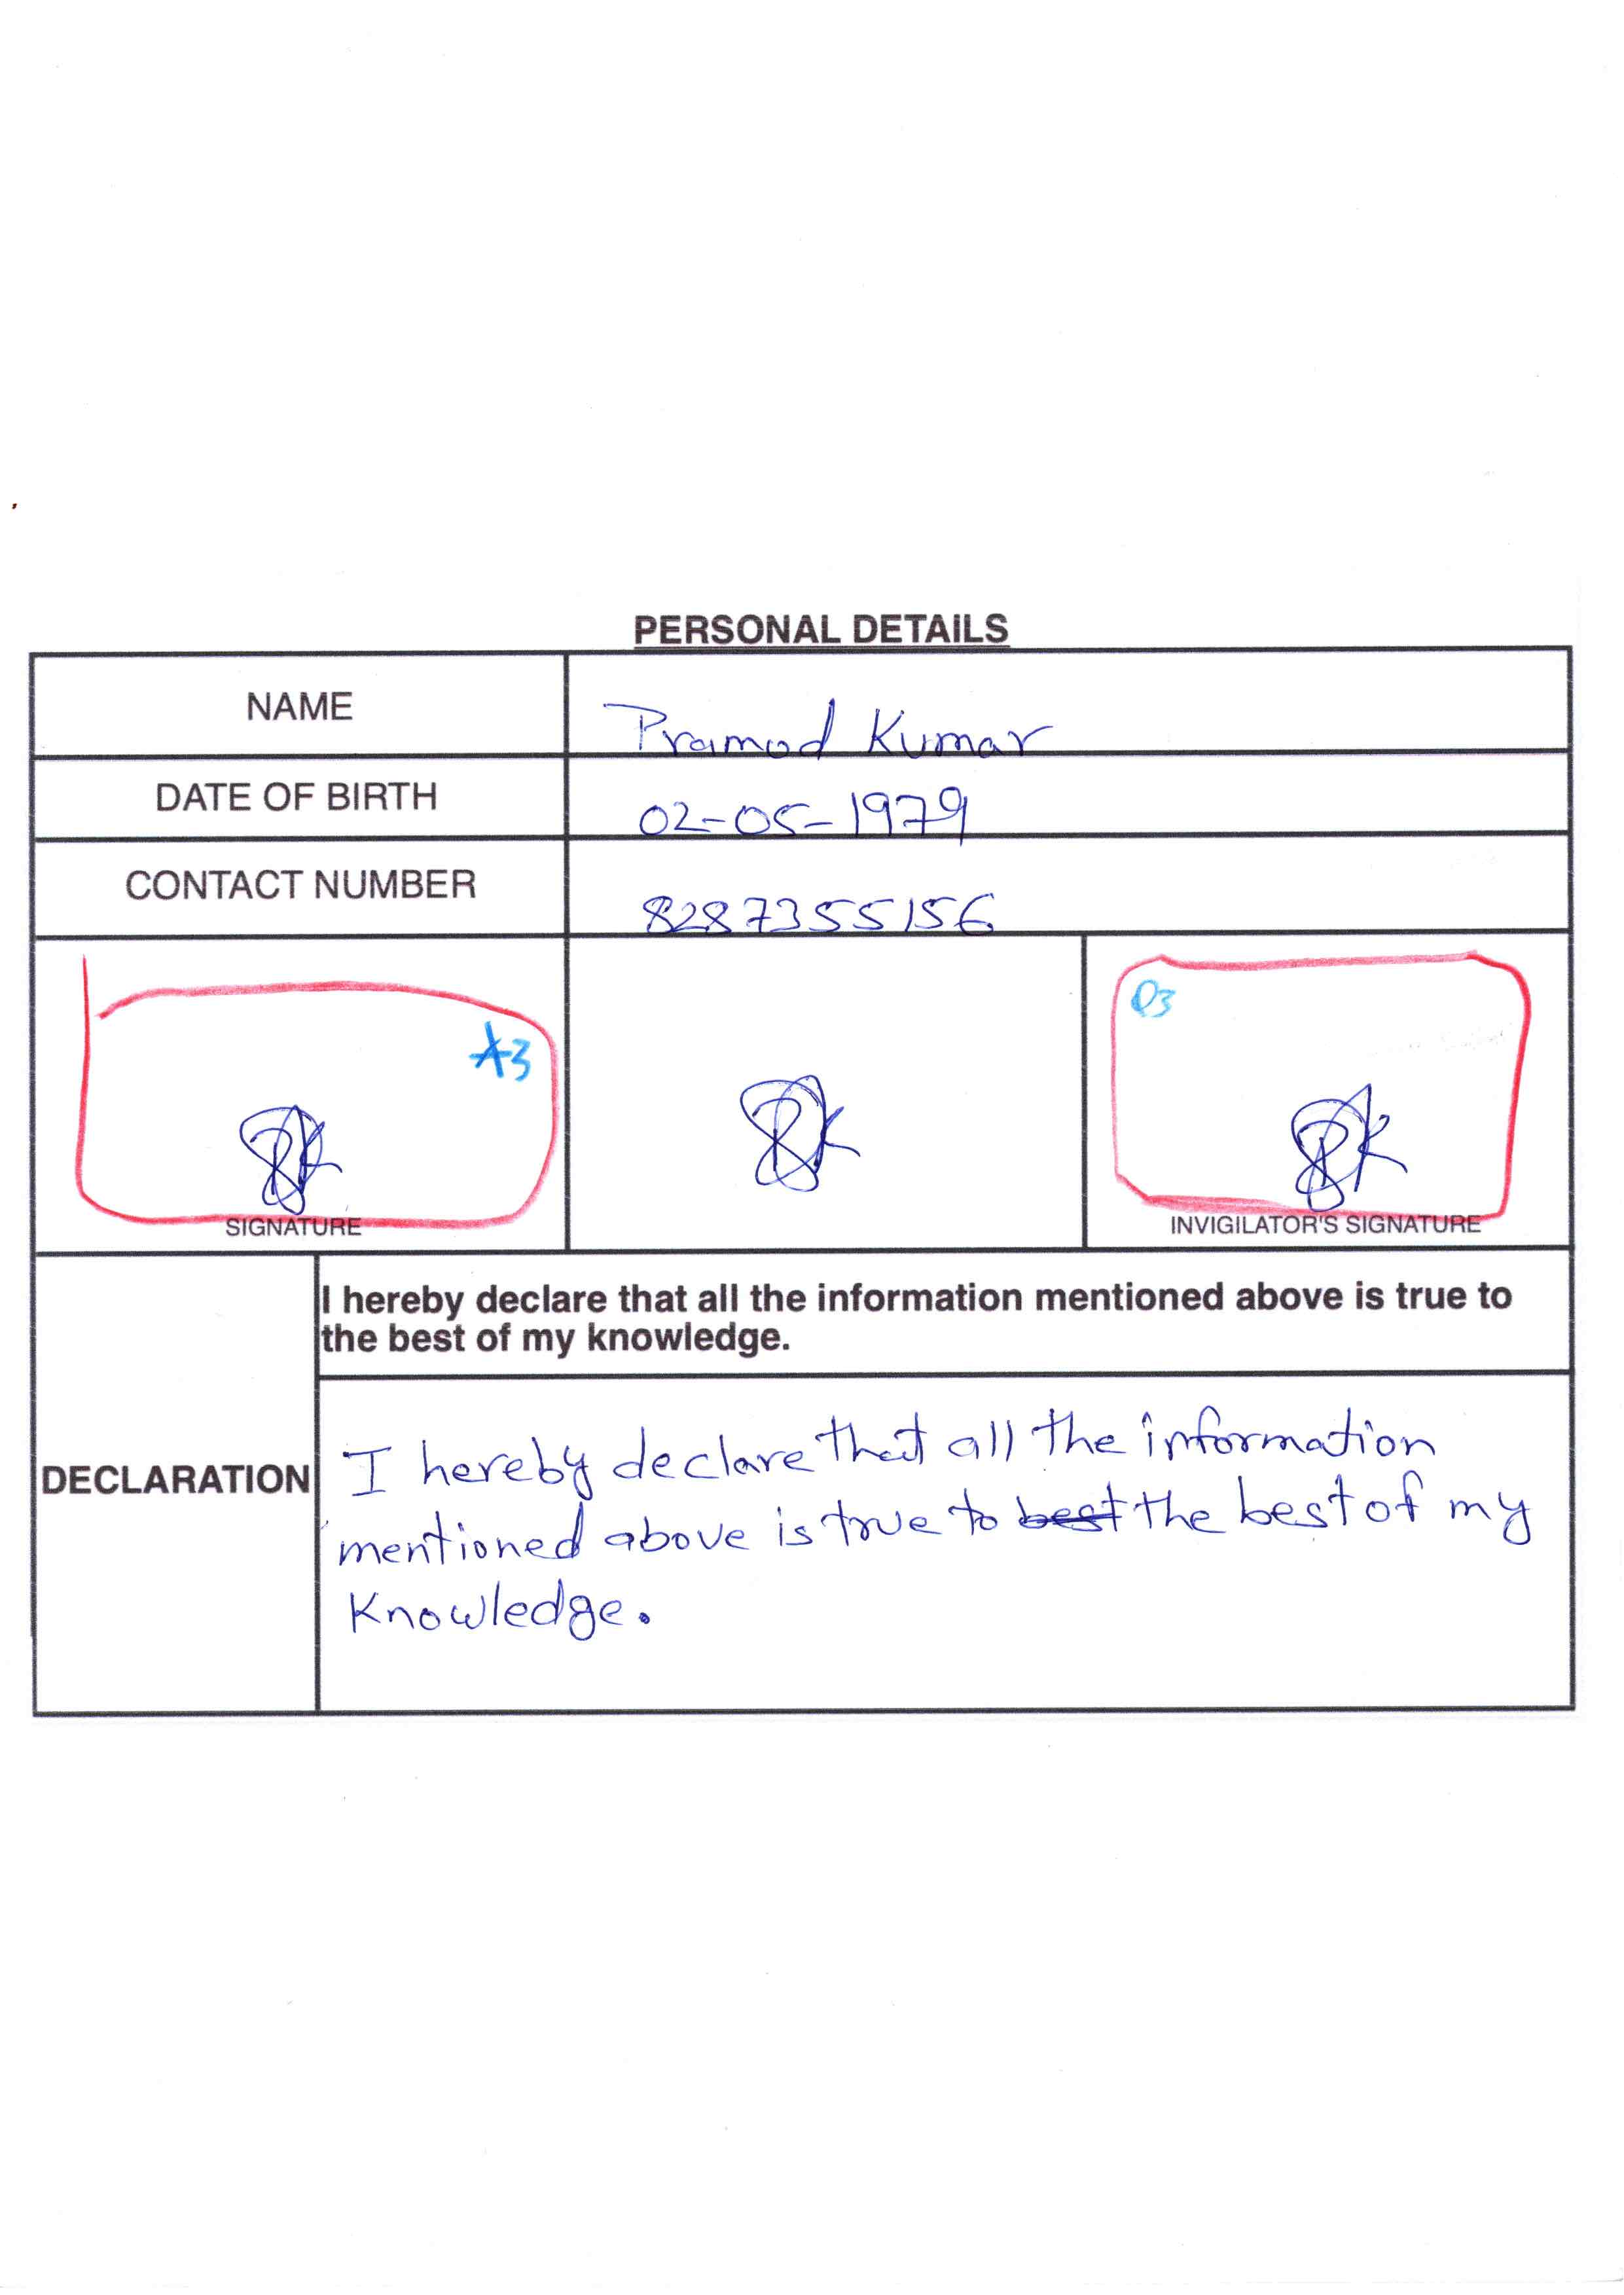 PERSONAL DETAILS
NAME Pramod Kumar
DATE OF BIRTH 02-05-1979
CONTACT NUMBER 8287355156
A3
Q3
SIGNATURE
INVIGILATOR'S SIGNATURE
I hereby declare that all the information mentioned above is true to
the best of my knowledge.
DECLARATION
I hereby declare that all the information
mentioned above is true to best the best of my
Knowledge.